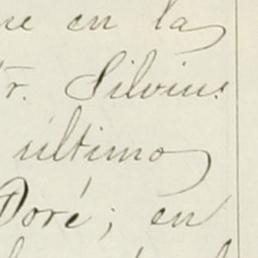 en la
r. Silvius
último
Doré; en